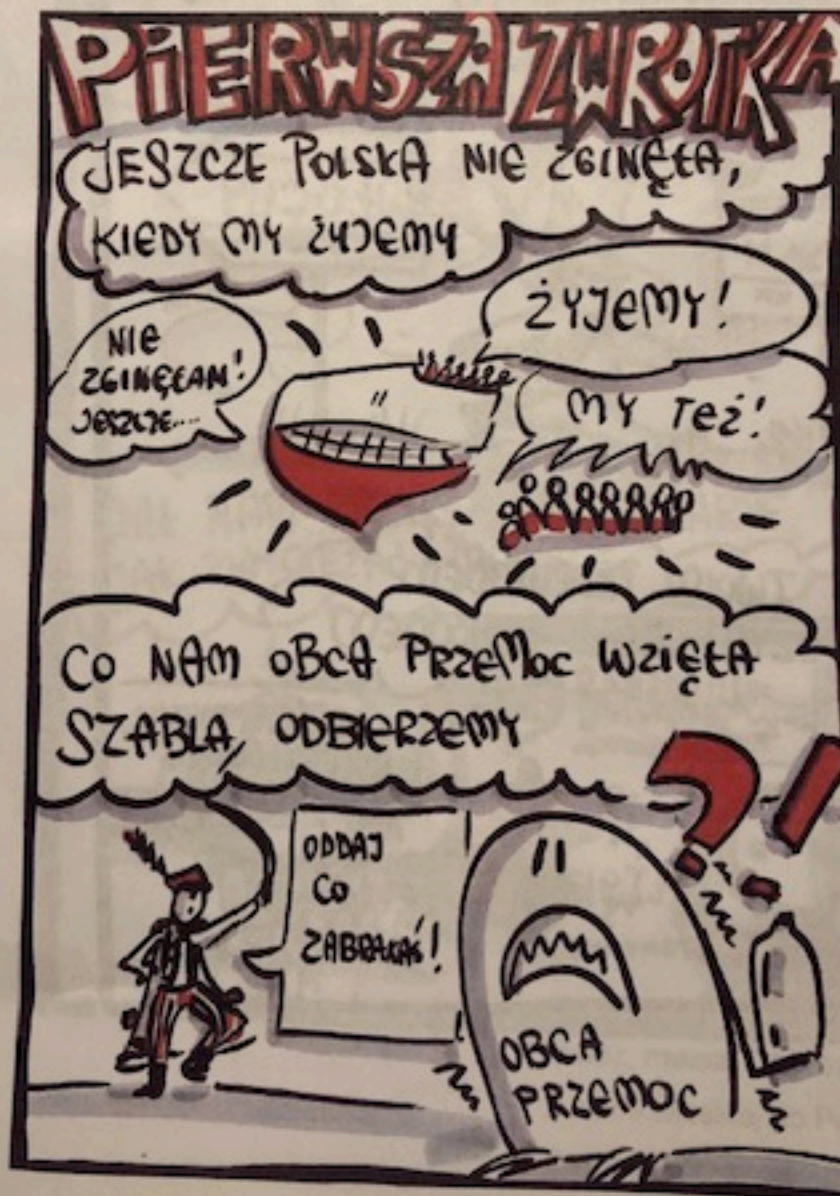 PIERWSZA ZWROTKA
JESZCZE POLSKA NIE ZGINĘŁA,
KIEDY MY ŻYJEMY
ŻYJEMY!
NIE
ZGINĘŁAM!
JESZCZE...
MY TEŻ!
CO NAM OBCA PRZEMOC WZIĘŁA
SZABLĄ ODBIERZEMY
?!
ODDAJ
CO
ZABRAŁAŚ!
OBCA
PRZEMOC